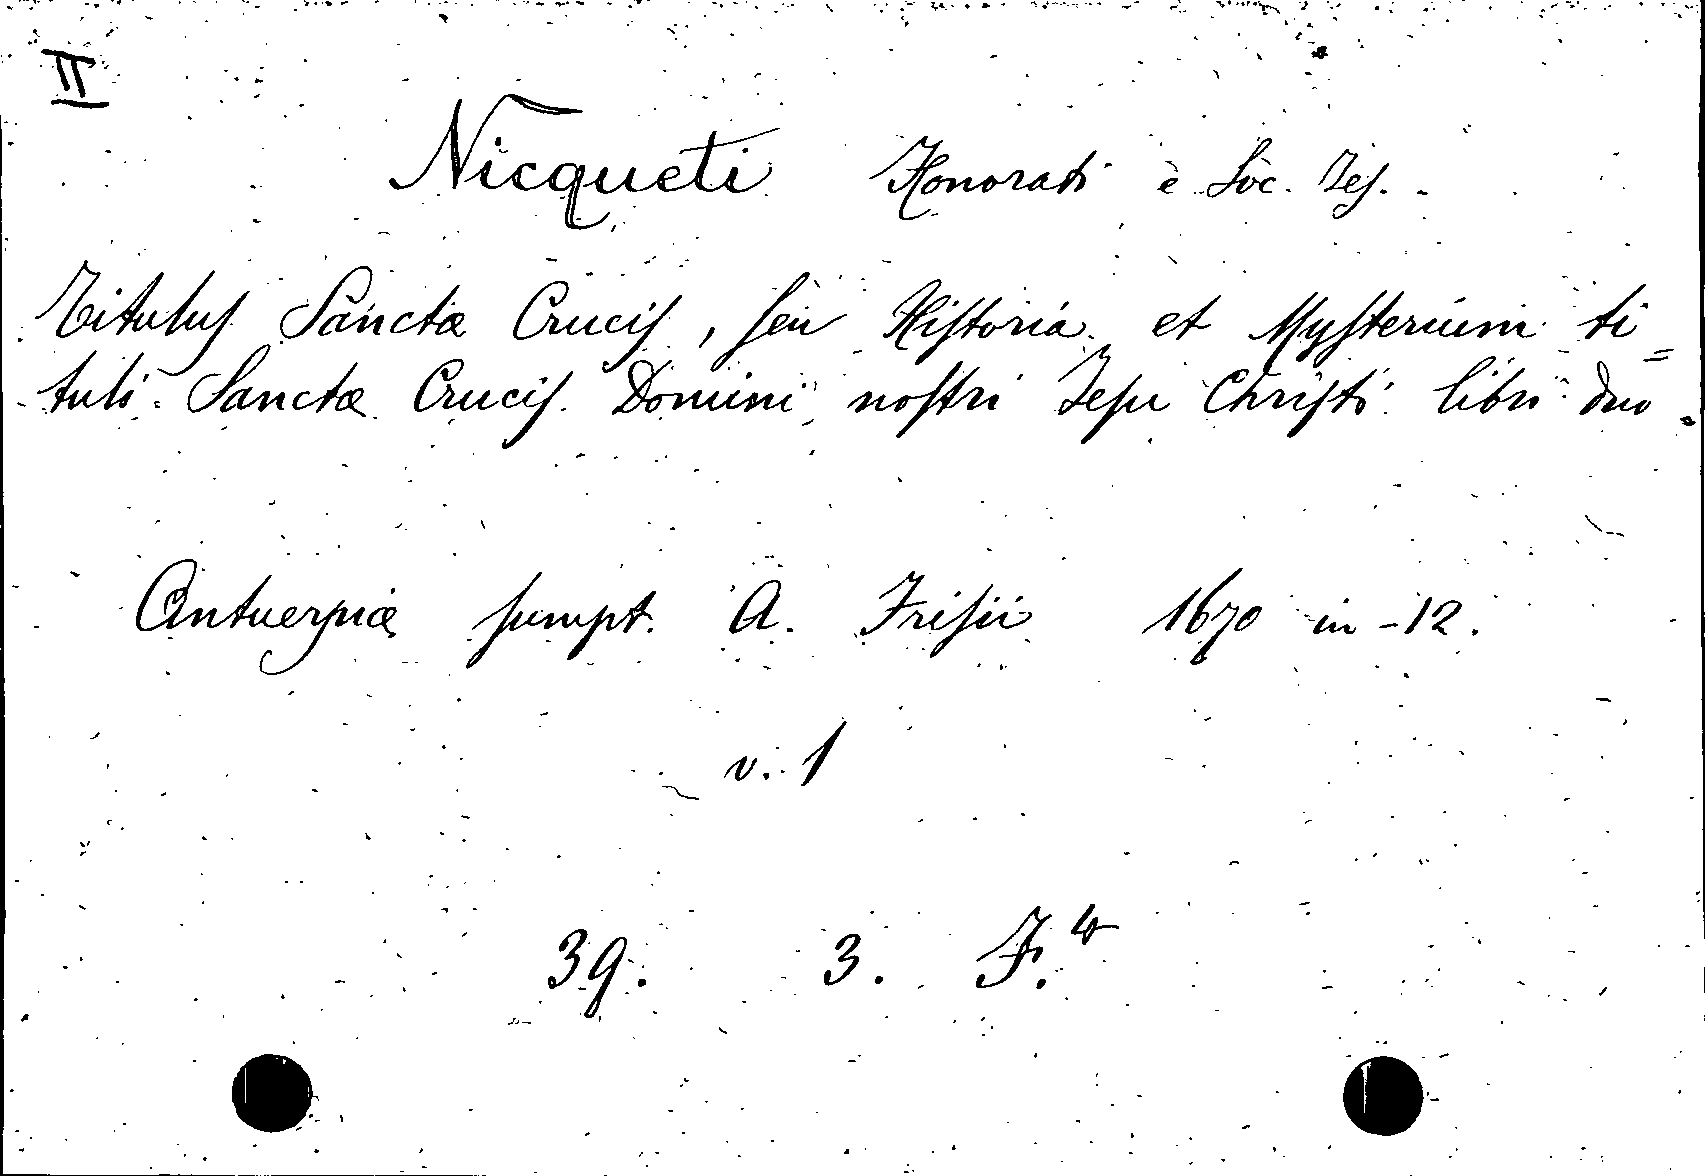 II
Nicqueti Honorati è Soc. Jes.
Titulus Sanctæ Crucis, seu Historia et Mysterium ti=
tuli Sanctæ Crucis Domini nostri Jesu Christi libri duo.
Antuerpiæ sumpt. A. Frisii 1670 in-12.
v. 1
39. 3. F.4